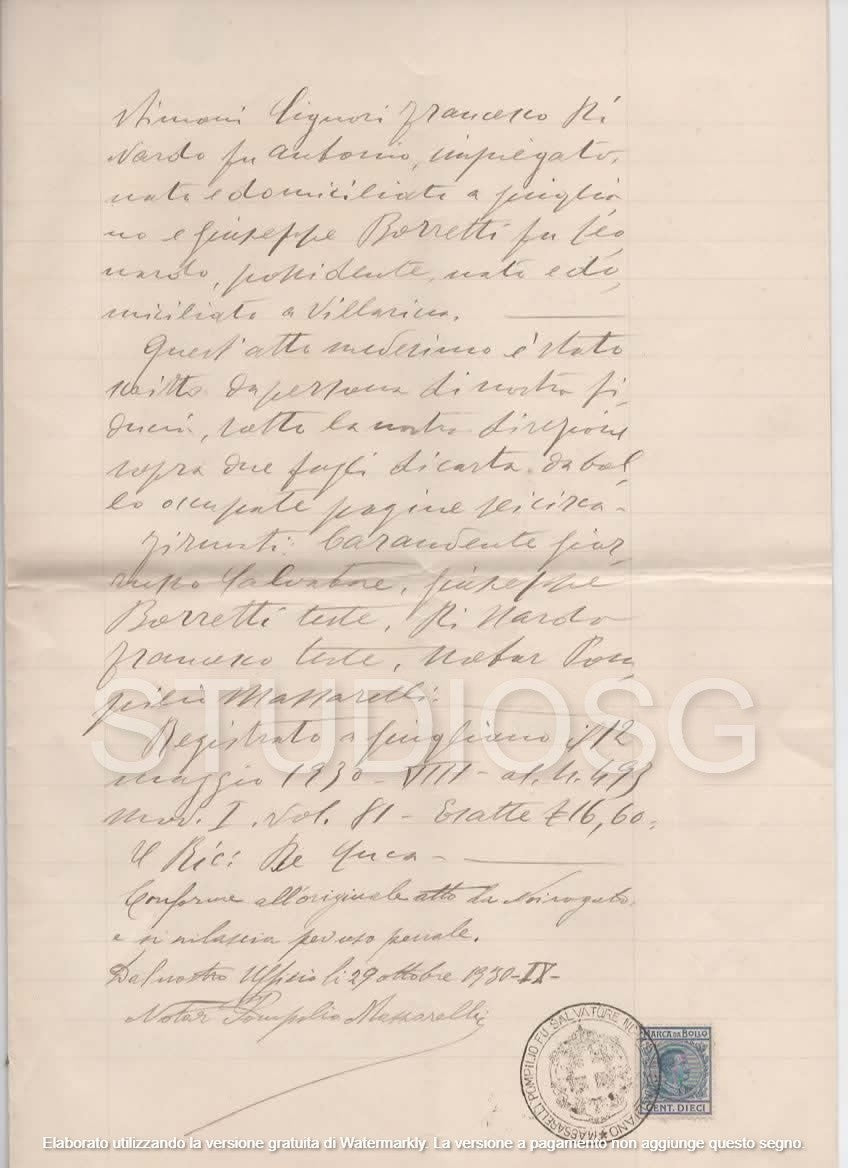 timoni Signori Francesco Di
Nardo fu Antonio, impiegato,
nato e domiciliato a Giuglia
no e Giuseppe Borretti fu Leo
nardo, possidente, nato e do
miciliato a Villaricca.
Quest'atto medesimo è stato
scritto da persona di nostra fi
ducia, sotto la nostra direzione
sopra due fogli di carta da bol
lo occupate pagine sei circa -
Firmati: Carandente Giar
russo Salvatore, Giuseppe
Borretti teste, Di Nardo
Francesco teste, Notar Pom
pilio Massarelli.
STUDIOSG
Registrato a Giugliano il 12
maggio 1930 - VIII - al N. 493
Mod. I. Vol. 81 - Esatte £ 16,60 =
Il Ric: De Luca -
Conforme all'originale atto da Noi rogato
e si rilascia per uso penale.
Dal nostro Ufficio li 29 ottobre 1930 - IX -
Notar Pompilio Massarelli
MASSARELLI POMPILIO FU SALVATORE
MARCA DA BOLLO
CENT. DIECI
Elaborato utilizzando la versione gratuita di Watermarkly. La versione a pagamento non aggiunge questo segno.